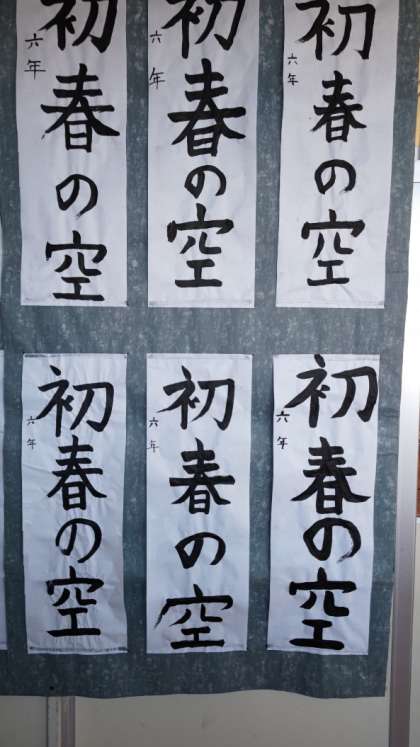 初春の空
六年
初春の空
六年
初春の空
六年
初春の空
六年
初春の空
六年
初春の空
六年